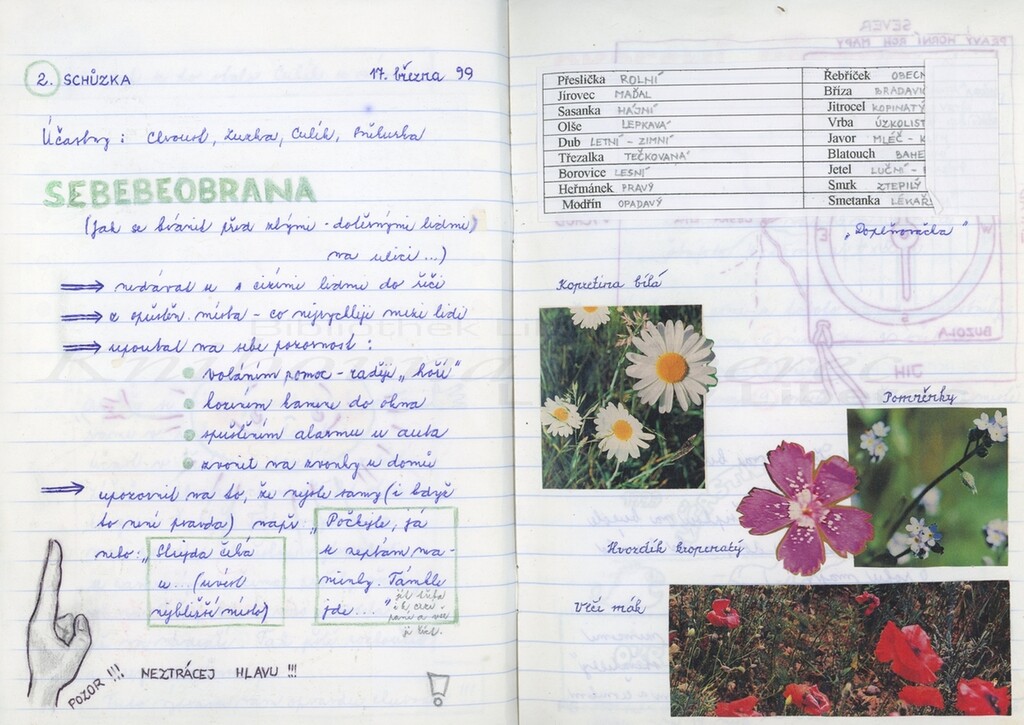 2. SCHŮZKA 17. března 99
Účastny:
SEBEBEOBRANA
(jak se bránit před zlými - dotěrnými lidmi)
na ulici...)
nedávat se s cizími lidmi do řeči
z opuštěn. místa - co nejrychleji mezi lidi
upoutat na sebe pozornost:
voláním pomoc - raději „hoří"
hozením kamene do okna
spuštěním alarmu u auta
zvonit na zvonky u domů
upozornit na to, že nejste samy (i když
to není pravda) např. „Počkejte, já
se zeptám ma-
minky. Támhle
jde..."
nebo: „Stejda čeká
u... (uvést
nejbližší místo)
POZOR!!! NEZTRÁCEJ HLAVU!!!
Přeslička ROLNÍ
Jírovec MAĎAL
Sasanka HAJNÍ
Olše LEPKAVÁ
Dub LETNÍ - ZIMNÍ
Třezalka TEČKOVANÁ
Borovice LESNÍ
Heřmánek PRAVÝ
Modřín OPADAVÝ
Řebříček OBECN
Bříza BRADAVI
Jitrocel KOPINATÝ
Vrba ÚZKOLIST
Javor MLÉČ - K
Blatouch BAHE
Jetel LUČNÍ -
Smrk ZTEPILÝ
Smetanka LÉKAŘ
„Doplňovačka"
Kopretina bílá
Pomněnky
Hvozdík kropenatý
Vlčí mák
SEVER
PRAVÝ HORNÍ ROH MAPY
BUZOLA
JIH